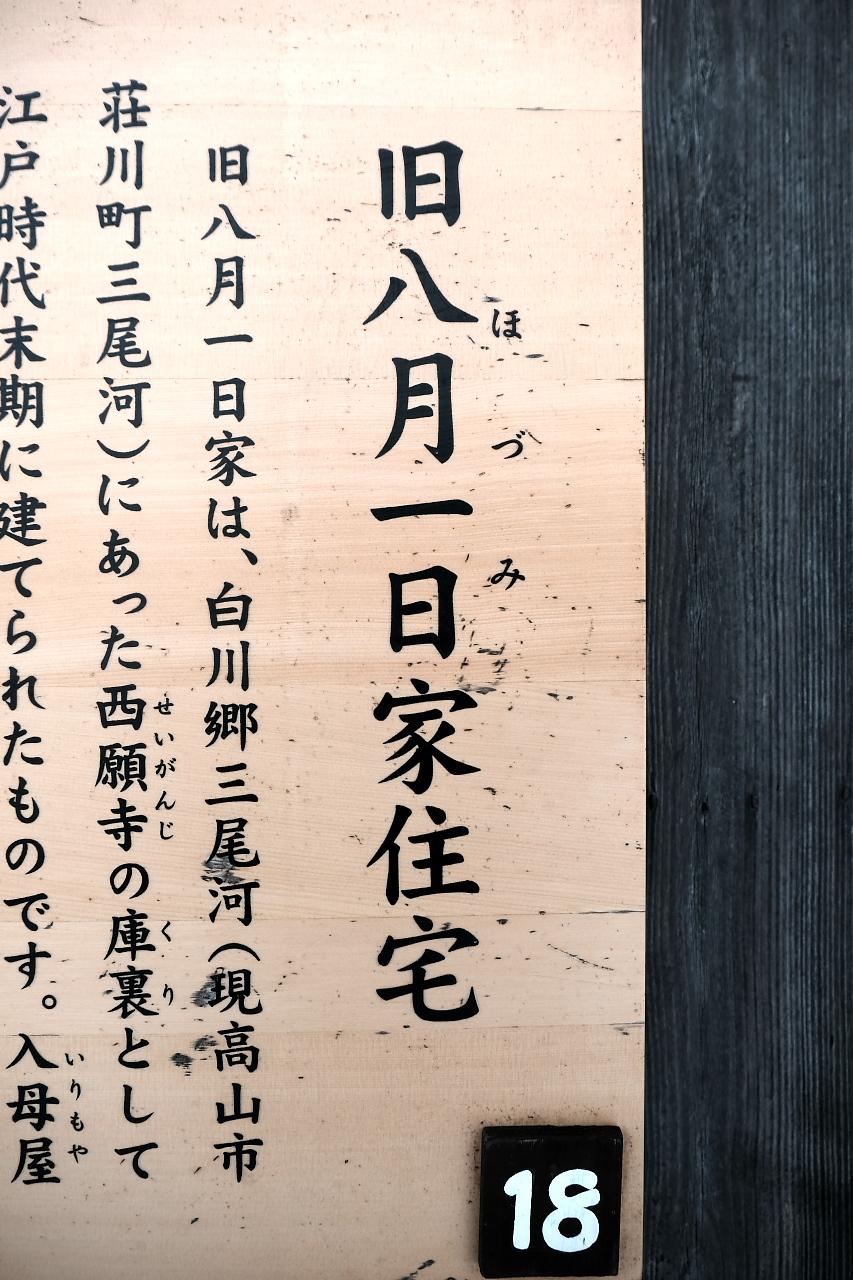 旧八月一日家住宅
ほづみ
旧八月一日家は、白川郷三尾河（現高山市
荘川町三尾河）にあった西願寺の庫裏として
せいがんじ
くり
江戸時代末期に建てられたものです。入母屋
いりもや
18